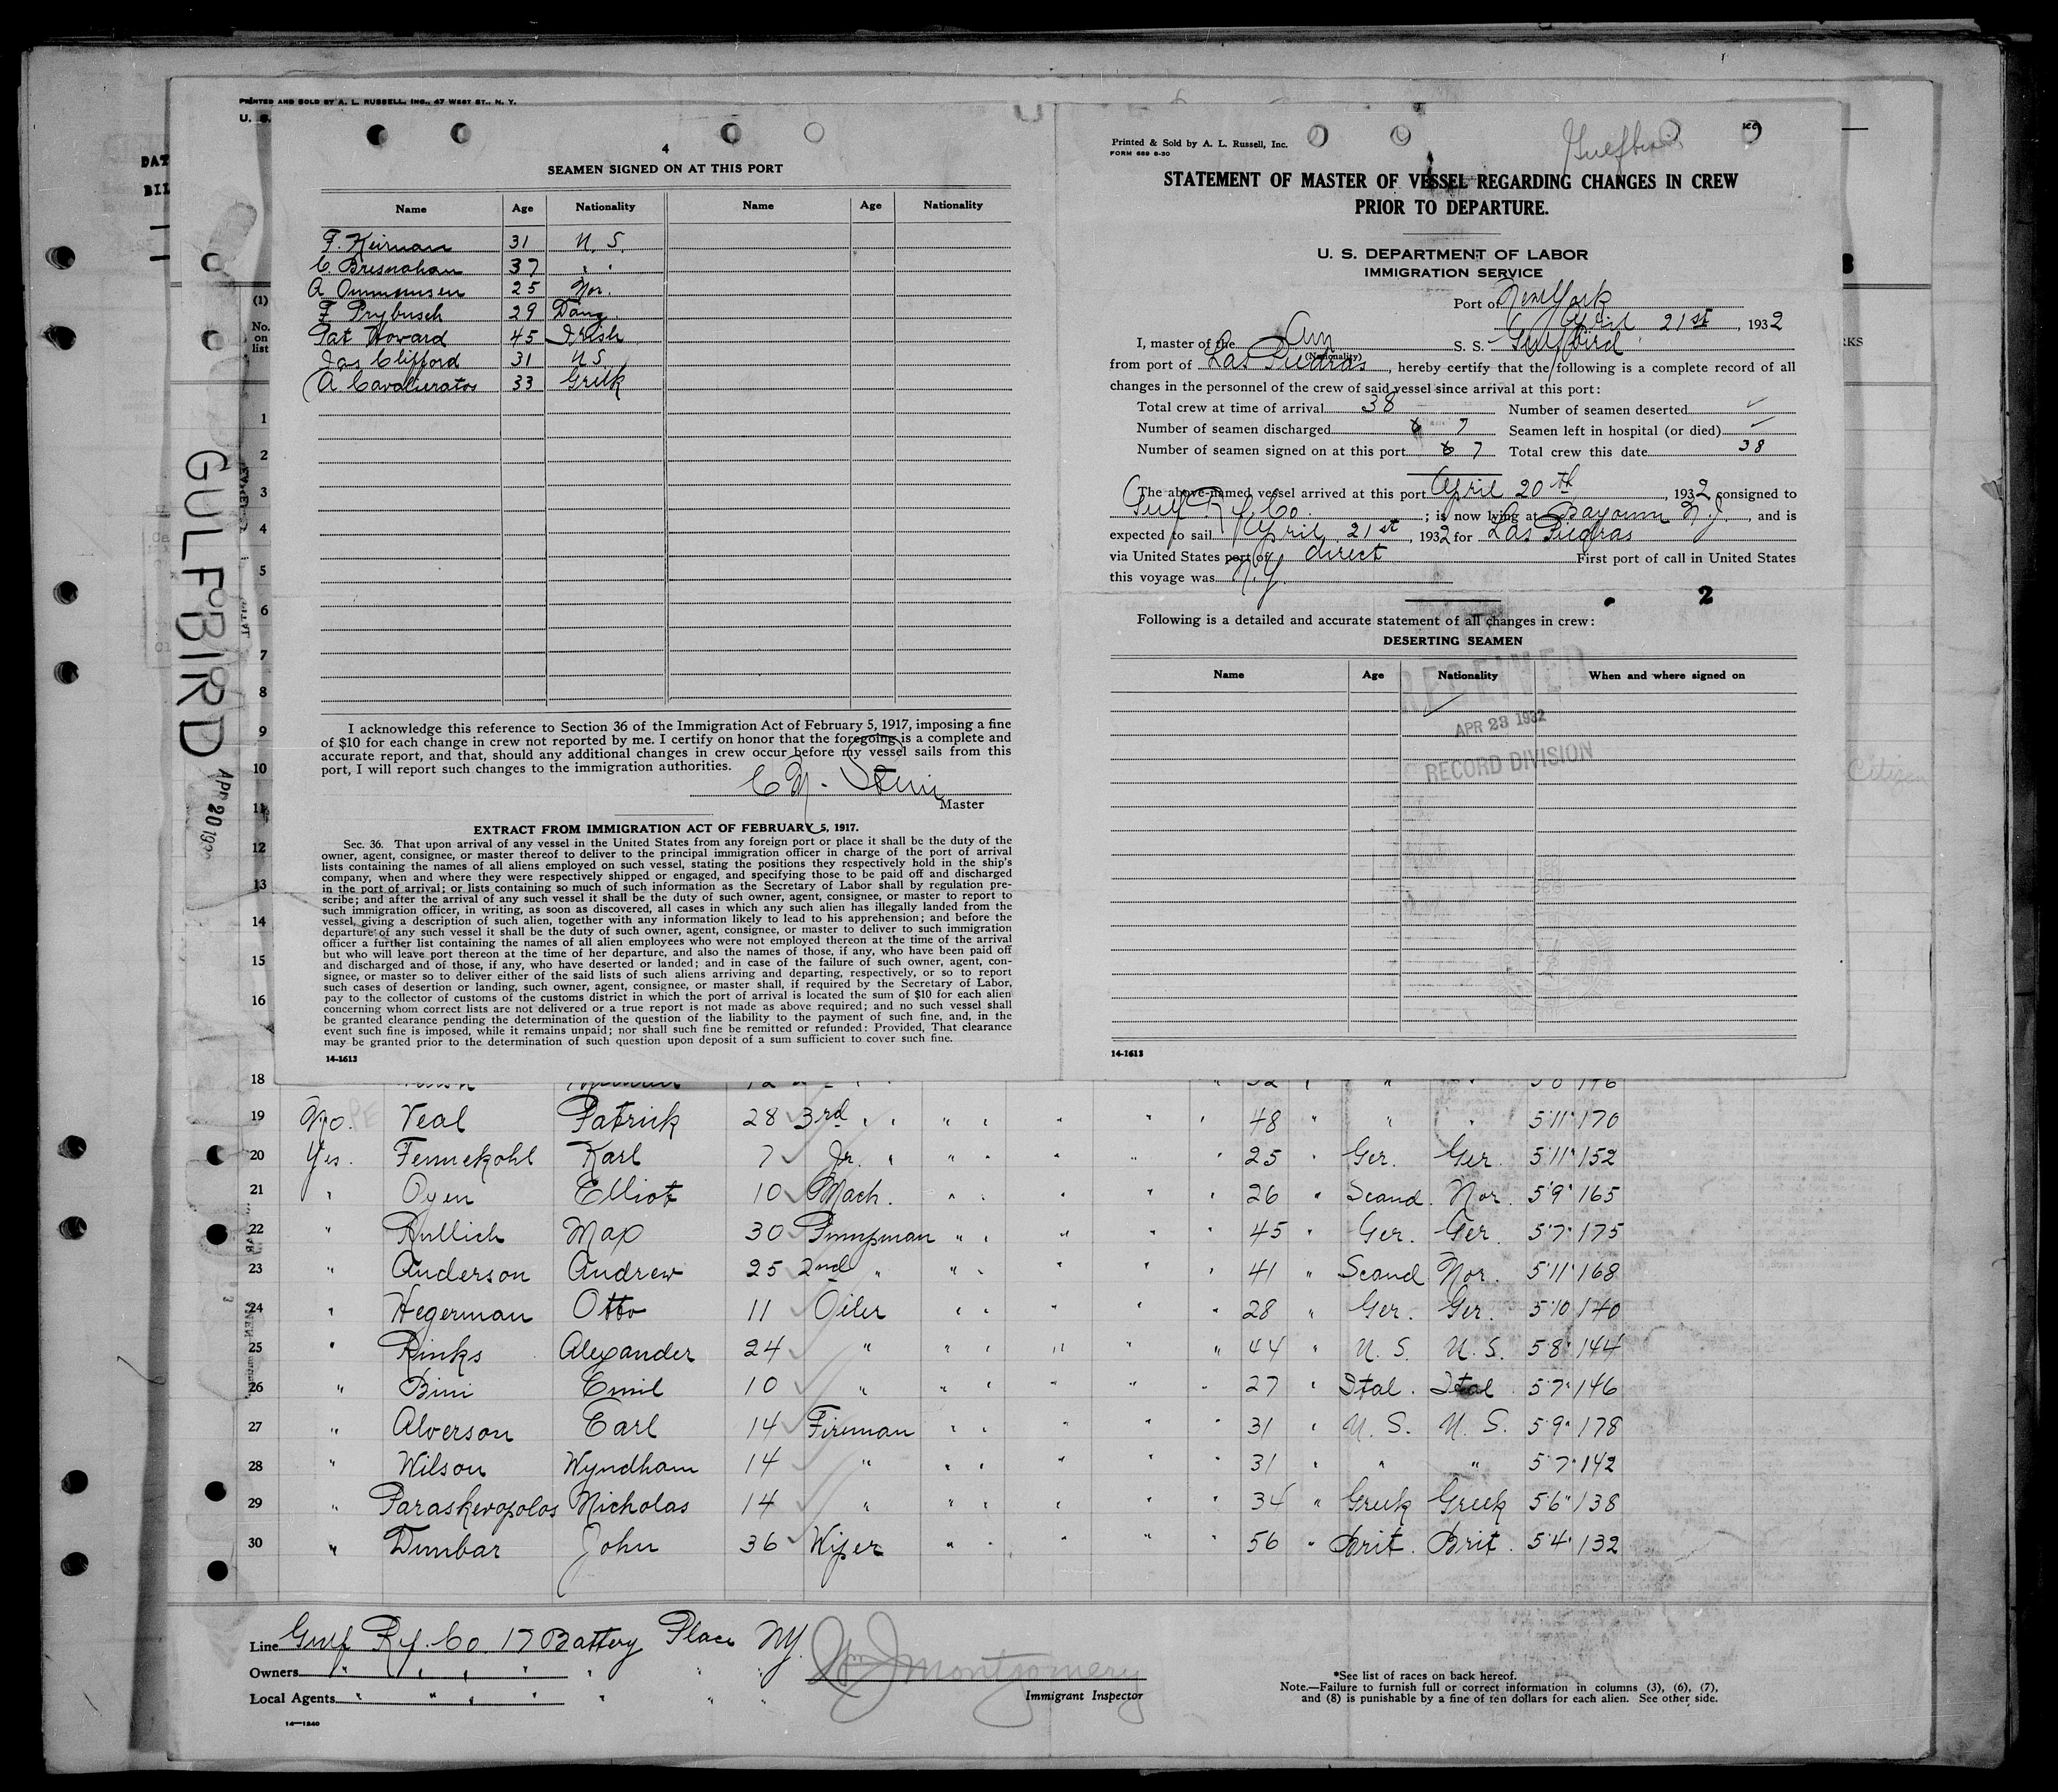 PRINTED AND SOLD BY A. L. RUSSELL, INC., 47 WEST ST., N. Y.
U. S.
DAT
BIL
GULFBIRD
APR 20
4
SEAMEN SIGNED ON AT THIS PORT
Name Age Nationality Name Age Nationality
F. Keirnan 31 U. S.
C. Bresnahan 37 " "
A 25 Nor.
F Prybusch 29 Danz.
Pat Howard 45 Irish
Jas Clifford 31 U S.
A Cavalieratos 33 Greek
I acknowledge this reference to Section 36 of the Immigration Act of February 5, 1917, imposing a fine
of $10 for each change in crew not reported by me. I certify on honor that the foregoing is a complete and
accurate report, and that, should any additional changes in crew occur before my vessel sails from this
port, I will report such changes to the immigration authorities.
Master
EXTRACT FROM IMMIGRATION ACT OF FEBRUARY 5, 1917.
Sec. 36. That upon arrival of any vessel in the United States from any foreign port or place it shall be the duty of the
owner, agent, consignee, or master thereof to deliver to the principal immigration officer in charge of the port of arrival
lists containing the names of all aliens employed on such vessel, stating the positions they respectively hold in the ship's
company, when and where they were respectively shipped or engaged, and specifying those to be paid off and discharged
in the port of arrival; or lists containing so much of such information as the Secretary of Labor shall by regulation pre-
scribe; and after the arrival of any such vessel it shall be the duty of such owner, agent, consignee, or master to report to
such immigration officer, in writing, as soon as discovered, all cases in which any such alien has illegally landed from the
vessel, giving a description of such alien, together with any information likely to lead to his apprehension; and before the
departure of any such vessel it shall be the duty of such owner, agent, consignee, or master to deliver to such immigration
officer a further list containing the names of all alien employees who were not employed thereon at the time of the arrival
but who will leave port thereon at the time of her departure, and also the names of those, if any, who have been paid off
and discharged and of those, if any, who have deserted or landed; and in case of the failure of such owner, agent, con-
signee, or master so to deliver either of the said lists of such aliens arriving and departing, respectively, or so to report
such cases of desertion or landing, such owner, agent, consignee, or master shall, if required by the Secretary of Labor,
pay to the collector of customs of the customs district in which the port of arrival is located the sum of $10 for each alien
concerning whom correct lists are not delivered or a true report is not made as above required; and no such vessel shall
be granted clearance pending the determination of the question of the liability to the payment of such fine, and, in the
event such fine is imposed, while it remains unpaid; nor shall such fine be remitted or refunded: Provided, That clearance
may be granted prior to the determination of such question upon deposit of a sum sufficient to cover such fine.
14-1613
Printed & Sold by A. L. Russell, Inc.
FORM 669 8-30
Gulfbird
STATEMENT OF MASTER OF VESSEL REGARDING CHANGES IN CREW
PRIOR TO DEPARTURE.
U. S. DEPARTMENT OF LABOR
IMMIGRATION SERVICE
Port of New York
April 21st, 1932
I, master of the Am S. S. Gulfbird
(Nationality)
from port of Las Piedras, hereby certify that the following is a complete record of all
changes in the personnel of the crew of said vessel since arrival at this port:
Total crew at time of arrival 38 Number of seamen deserted ✓
Number of seamen discharged 6 7 Seamen left in hospital (or died) ✓
Number of seamen signed on at this port 6 7 Total crew this date 38
The above-named vessel arrived at this port April 20th, 1932 consigned to
Gulf Ref. Co.; is now lying at Bayonne N.J., and is
expected to sail April 21st, 1932 for Las Piedras
via United States port of direct First port of call in United States
this voyage was N.Y.
2
Following is a detailed and accurate statement of all changes in crew:
DESERTING SEAMEN
Name Age Nationality When and where signed on
RECEIVED
APR 23 1932
RECORD DIVISION
14-1613
RKS
Citizen
(1)
No.
on
list
1
2
3
4
5
6
7
8
9
10
11
12
13
14
15
16
18
19 No. Veal Patrick 28 3rd " " " " " " " 48 " " " 5'11" 170
20 Yes. Fennekohl Karl 7 Jr. " " " " " " 25 " Ger. Ger. 5'11" 152
21 " Oyen Elliot 10 Mach. " " " " " 26 " Scand. Nor. 5'9" 165
22 " Rullich Max 30 Pumpman " " " " " 45 " Ger. Ger. 5'7" 175
23 " Anderson Andrew 25 2nd " " " " " " 41 " Scand Nor. 5'11" 168
24 " Hegerman Otto 11 Oiler " " " " " 28 " Ger. Ger. 5'10 140
25 " Rinks Alexander 24 " " " " " " 44 " U. S. U. S. 5'8" 144
26 " Bini Emil 10 " " " " " " 27 " Ital. Ital 5'7" 146
27 " Alverson Earl 14 Fireman " " " " " 31 " U. S. U. S. 5'9" 178
28 " Wilson Wyndham 14 " " " " " " 31 " " " 5'7" 142
29 " Paraskevopolos Nicholas 14 " " " " " " 34 " Greek Greek 5'6" 138
30 " Dunbar John 36 Wiper " " " " " 56 " Brit. Brit. 5'4" 132
Line Gulf Ref. Co. 17 Battery Place NY.
Owners " " " " " " "
Local Agents " " " " " " "
Montgomery
Immigrant Inspector
*See list of races on back hereof.
Note.—Failure to furnish full or correct information in columns (3), (6), (7),
and (8) is punishable by a fine of ten dollars for each alien. See other side.
14—1240